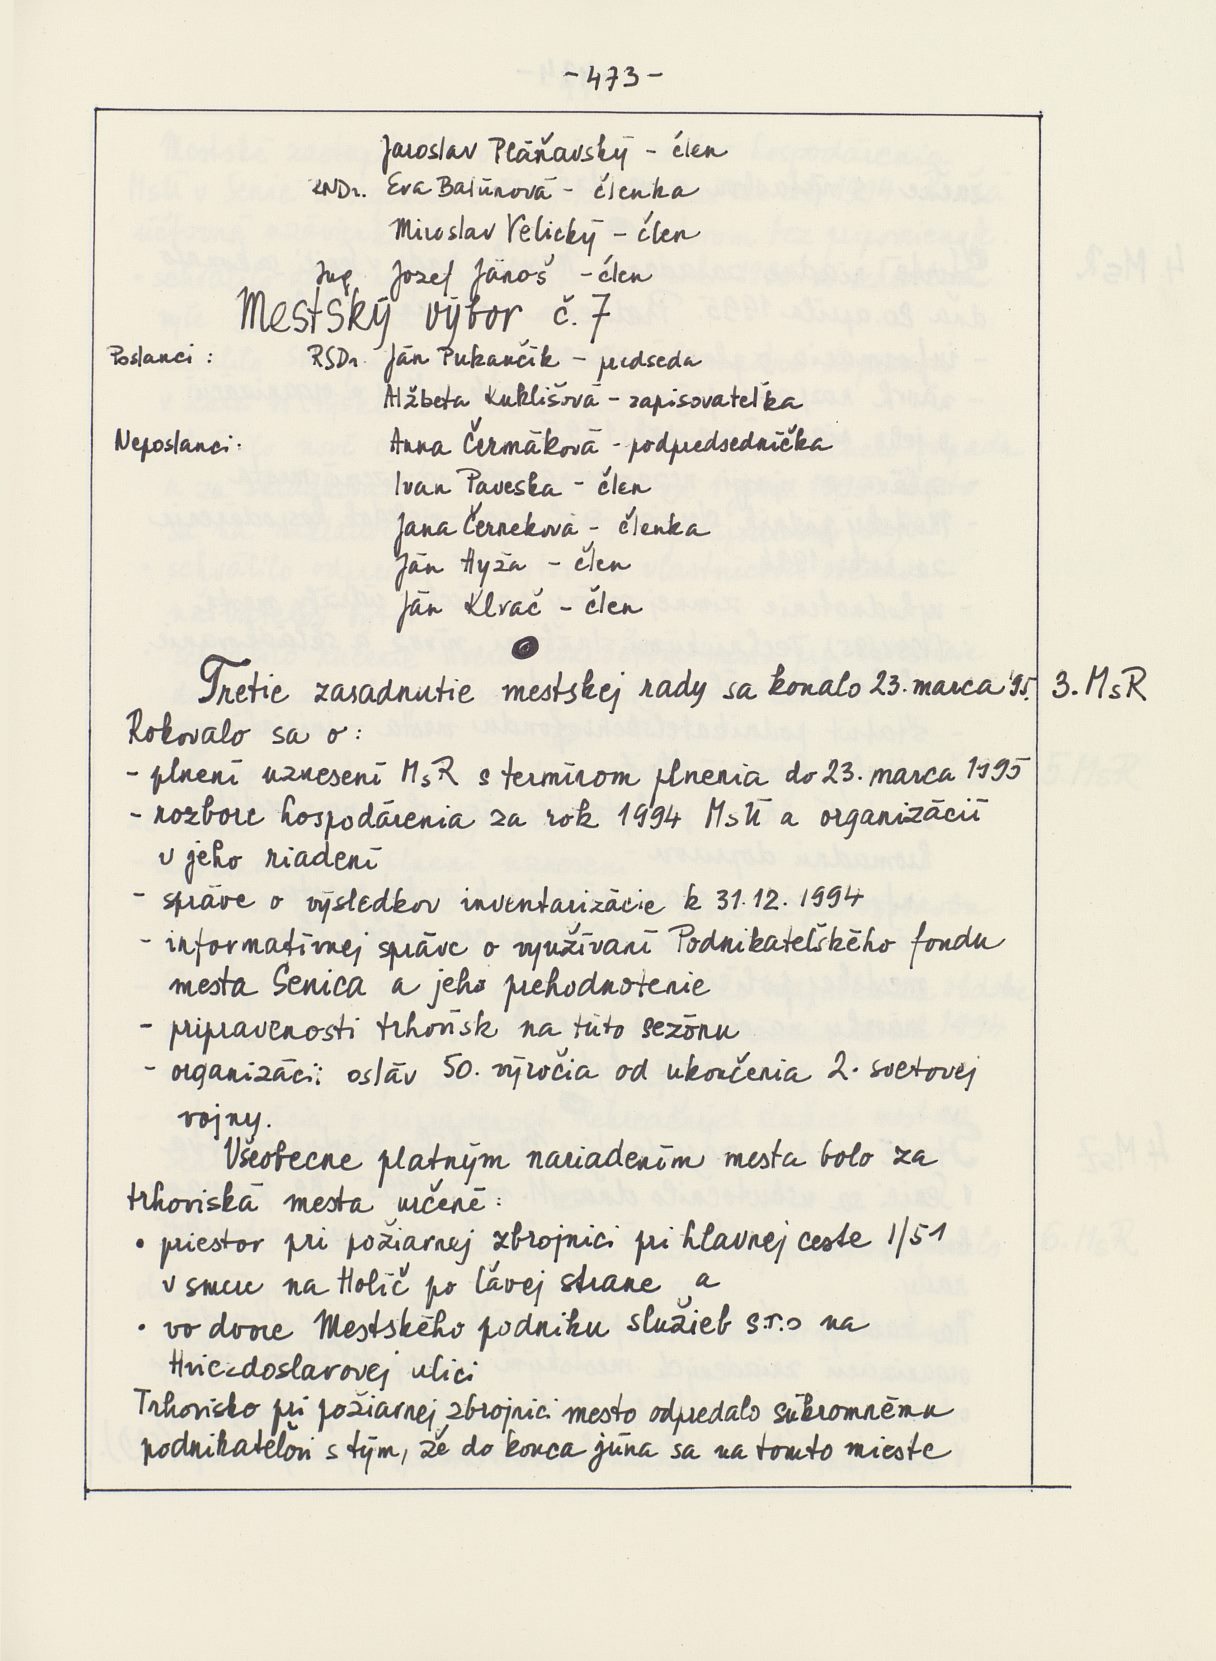 - 473 -
Jaroslav Pláňavský - člen
RNDr. Eva Balúnová - členka
Miroslav Velický - člen
Ing. Jozef Jánoš - člen
Mestský výbor č. 7
Poslanci : RSDr. Ján Pukančík - predseda
Alžbeta Kuklišová - zapisovateľka
Neposlanci: Anna Čermáková - podpredsedníčka
Ivan Paveska - člen
Jana Černeková - členka
Ján Hyža - člen
Ján Klvač - člen
Tretie zasadnutie mestskej rady sa konalo 23. marca '95. 3. MsR
Rokovalo sa o :
- plnení uznesení MsR s termínom plnenia do 23. marca 1995
- rozbore hospodárenia za rok 1994 MsÚ a organizácií
v jeho riadení
- správe o výsledkov inventarizácie k 31.12. 1994
- informatívnej správe o využívaní Podnikateľského fondu
mesta Senica a jeho prehodnotenie
- pripravenosti trhovísk na túto sezónu
- organizácií osláv 50. výročia od ukončenia 2. svetovej
vojny.
Všeobecne platným nariadením mesta bolo za
trhoviská mesta určené :
• priestor pri požiarnej zbrojnici pri hlavnej ceste I/51
v smere na Holíč po ľavej strane a
• vo dvore Mestského podniku služieb s.r.o na
Hviezdoslavovej ulici
Trhovisko pri požiarnej zbrojnici mesto odpredalo súkromnému
podnikateľovi s tým, že do konca júna sa na tomto mieste